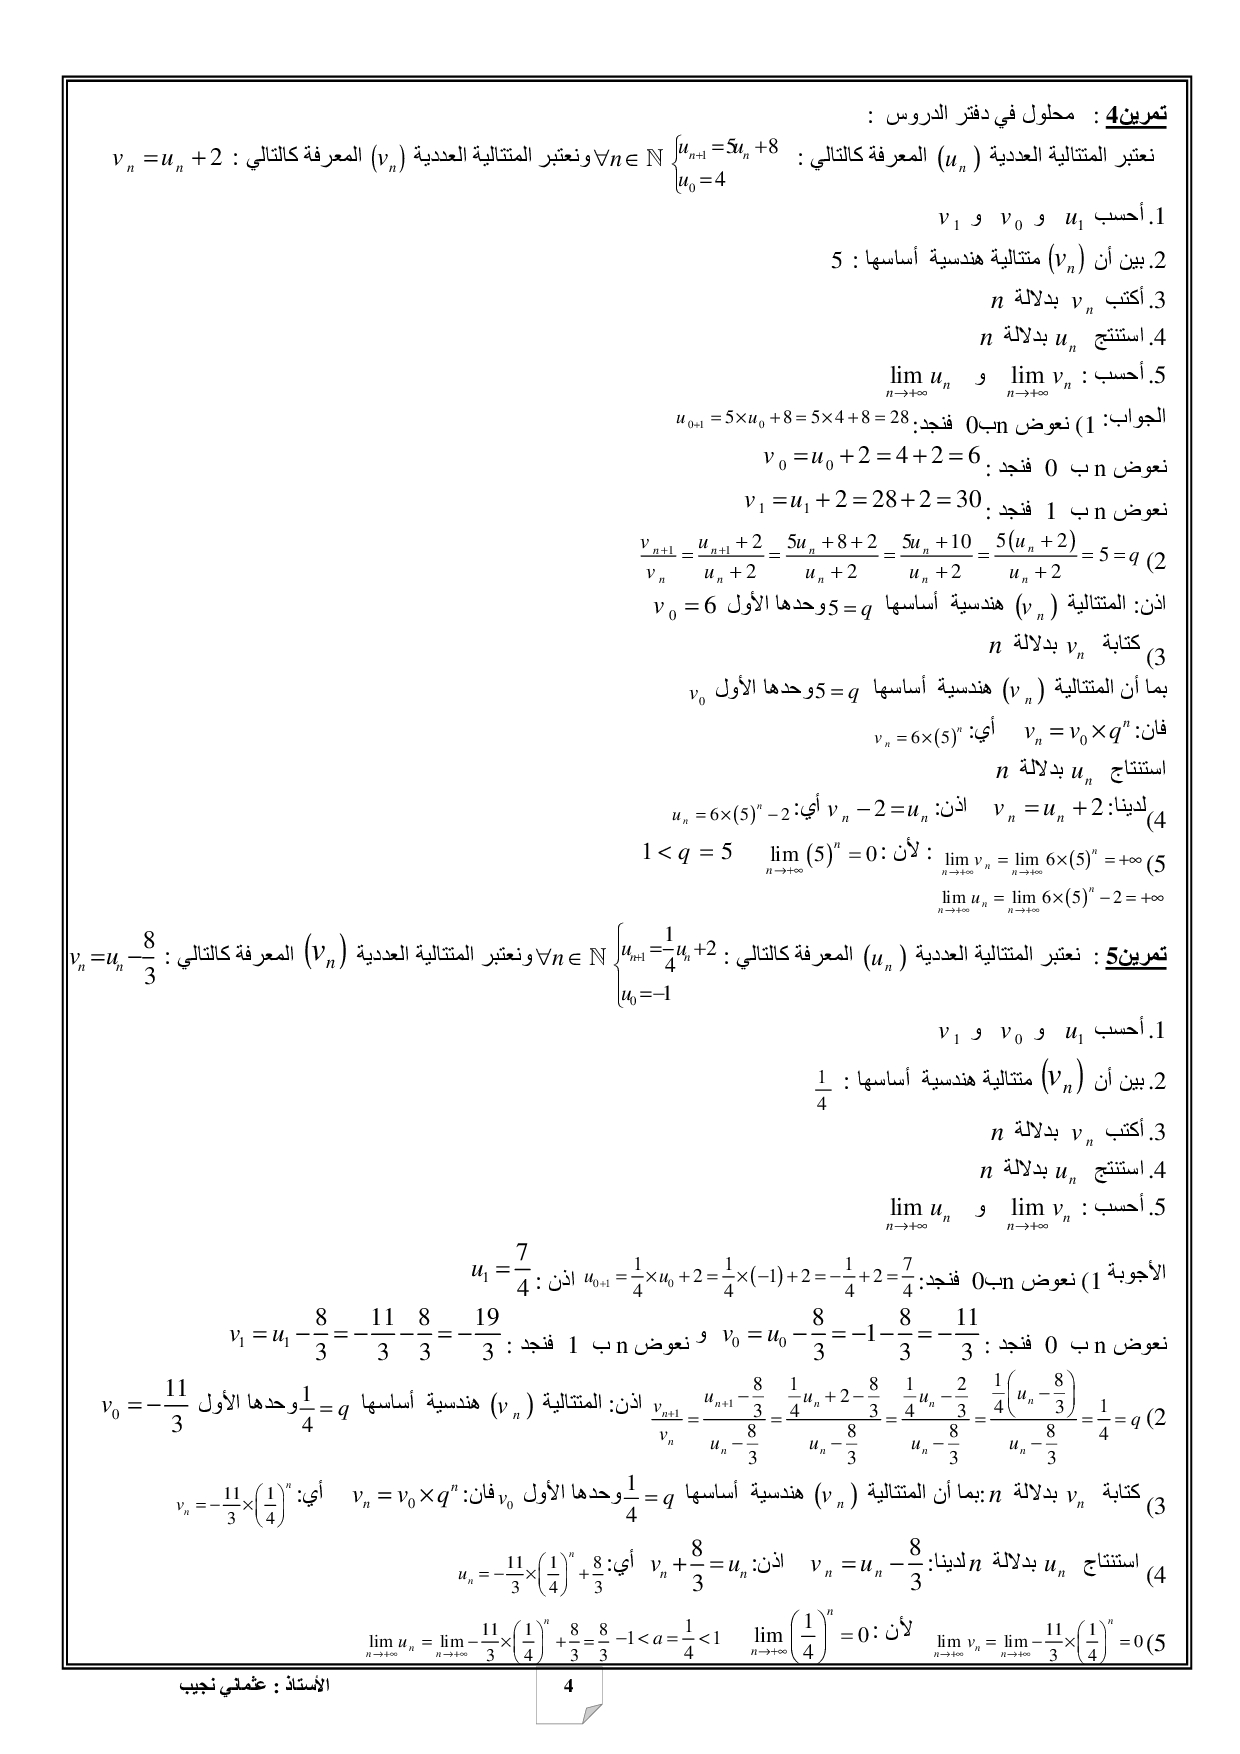 تمرين4 : محلول في دفتر الدروس :
نعتبر المتتالية العددية (u_n) المعرفة كالتالي : { u_{n+1} = 5u_n + 8 ; u_0 = 4 ∀n ∈ ℕ ونعتبر المتتالية العددية (v_n) المعرفة كالتالي : v_n = u_n + 2
1. أحسب u_1 و v_0 و v_1
2. بين أن (v_n) متتالية هندسية أساسها : 5
3. أكتب v_n بدلالة n
4. استنتج u_n بدلالة n
5. أحسب : lim_{n→+∞} v_n و lim_{n→+∞} u_n
الجواب: 1) نعوض nب0 فنجد: u_{0+1} = 5×u_0 + 8 = 5×4 + 8 = 28
نعوض n ب 0 فنجد : v_0 = u_0 + 2 = 4 + 2 = 6
نعوض n ب 1 فنجد : v_1 = u_1 + 2 = 28 + 2 = 30
2) v_{n+1}/v_n = (u_{n+1} + 2)/(u_n + 2) = (5u_n + 8 + 2)/(u_n + 2) = (5u_n + 10)/(u_n + 2) = 5(u_n + 2)/(u_n + 2) = 5 = q
اذن: المتتالية (v_n) هندسية أساسها 5 = q وحدها الأول v_0 = 6
3) كتابة v_n بدلالة n
بما أن المتتالية (v_n) هندسية أساسها 5 = q وحدها الأول v_0
فان: v_n = v_0 × q^n أي: v_n = 6×(5)^n
استنتاج u_n بدلالة n
4) لدينا: v_n = u_n + 2 اذن: v_n − 2 = u_n أي: u_n = 6×(5)^n − 2
5) lim_{n→+∞} v_n = lim_{n→+∞} 6×(5)^n = +∞ : لأن : lim_{n→+∞} (5)^n = 0 1 < q = 5
lim_{n→+∞} u_n = lim_{n→+∞} 6×(5)^n − 2 = +∞
تمرين5 : نعتبر المتتالية العددية (u_n) المعرفة كالتالي : { u_{n+1} = 1/4 u_n + 2 ; u_0 = −1 ∀n ∈ ℕ ونعتبر المتتالية العددية (v_n) المعرفة كالتالي : v_n = u_n − 8/3
1. أحسب u_1 و v_0 و v_1
2. بين أن (v_n) متتالية هندسية أساسها : 1/4
3. أكتب v_n بدلالة n
4. استنتج u_n بدلالة n
5. أحسب : lim_{n→+∞} v_n و lim_{n→+∞} u_n
الأجوبة 1) نعوض nب0 فنجد: u_{0+1} = 1/4 × u_0 + 2 = 1/4 × (−1) + 2 = −1/4 + 2 = 7/4 اذن : u_1 = 7/4
نعوض n ب 0 فنجد : v_0 = u_0 − 8/3 = −1 − 8/3 = −11/3 و نعوض n ب 1 فنجد : v_1 = u_1 − 8/3 = −11/3 − 8/3 = −19/3
2) v_{n+1}/v_n = (u_{n+1} − 8/3)/(u_n − 8/3) = (1/4 u_n + 2 − 8/3)/(u_n − 8/3) = (1/4 u_n − 2/3)/(u_n − 8/3) = 1/4(u_n − 8/3)/(u_n − 8/3) = 1/4 = q اذن: المتتالية (v_n) هندسية أساسها 1/4 = q وحدها الأول v_0 = −11/3
3) كتابة v_n بدلالة n :بما أن المتتالية (v_n) هندسية أساسها 1/4 = q وحدها الأول v_0 فان: v_n = v_0 × q^n أي: v_n = −11/3 × (1/4)^n
4) استنتاج u_n بدلالة n لدينا: v_n = u_n − 8/3 اذن: v_n + 8/3 = u_n أي: u_n = −11/3 × (1/4)^n + 8/3
5) lim_{n→+∞} v_n = lim_{n→+∞} −11/3 × (1/4)^n = 0 لأن : lim_{n→+∞} (1/4)^n = 0 −1 < a = 1/4 < 1 lim_{n→+∞} u_n = lim_{n→+∞} −11/3 × (1/4)^n + 8/3 = 8/3
الأستاذ : عثماني نجيب 4